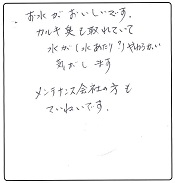 ・お水がおいしいです。
カルキ臭も取れていて
水がし(水あたり?)やわらかい
気がします
メンテナンス会社の方も
ていねいです。